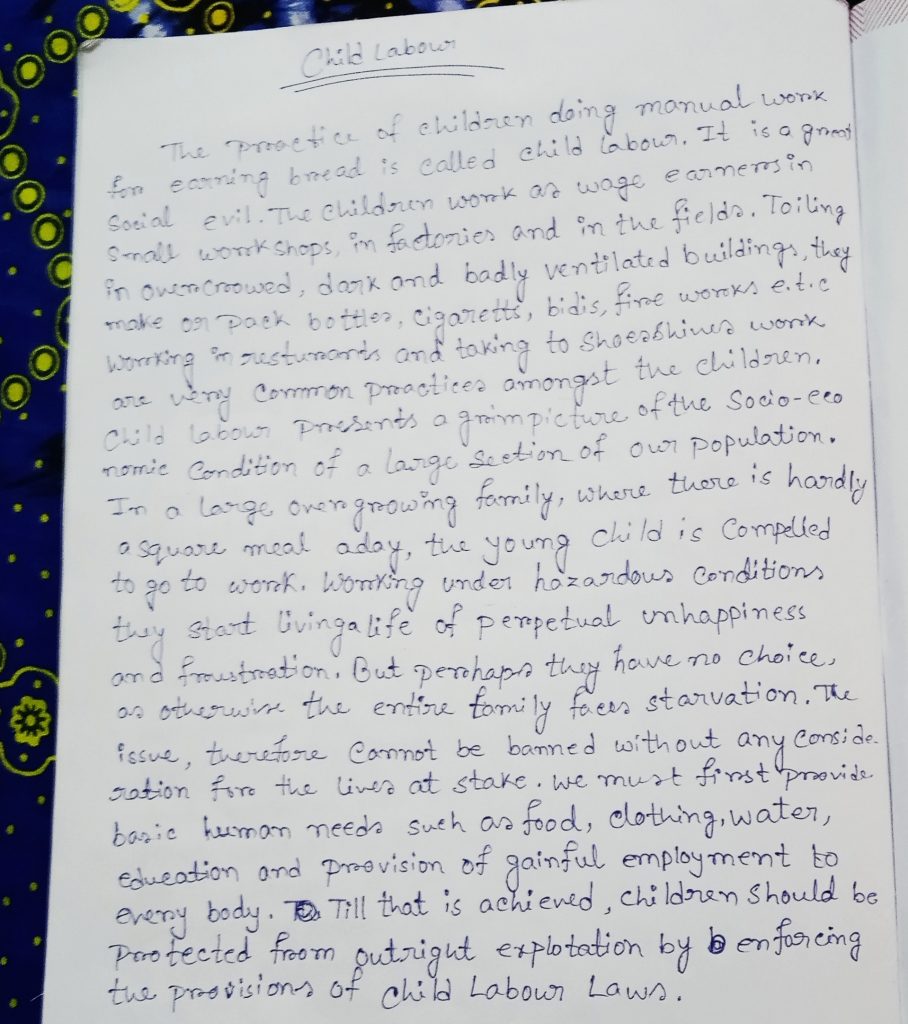 Child Labour
The practice of children doing manual work
for earning bread is called child labour. It is a great
Social evil. The children work as wage earners in
Small workshops, in factories and in the fields. Toiling
in overcrowed, dark and badly ventilated buildings, they
make or pack bottles, cigaretts, bidis, fire works e.t.c
Working in resturants and taking to Shoesshines work
are very Common practices amongst the children.
Child labour presents a grim picture of the Socio-eco
nomic Condition of a large Section of our population.
In a large overgrowing family, where there is hardly
a square meal aday, the young child is Compelled
to go to work. Working under hazardous Conditions
they start living a life of perpetual unhappiness
and frustration. But perhaps they have no choice,
as otherwise the entire family faces starvation. The
issue, therefore Cannot be banned without any Conside-
ration for the lives at stake. We must first provide
basic human needs such as food, clothing, water,
education and provision of gainful employment to
every body. Till that is achieved, children should be
Protected from outright explotation by enforcing
the provisions of Child Labour Laws.